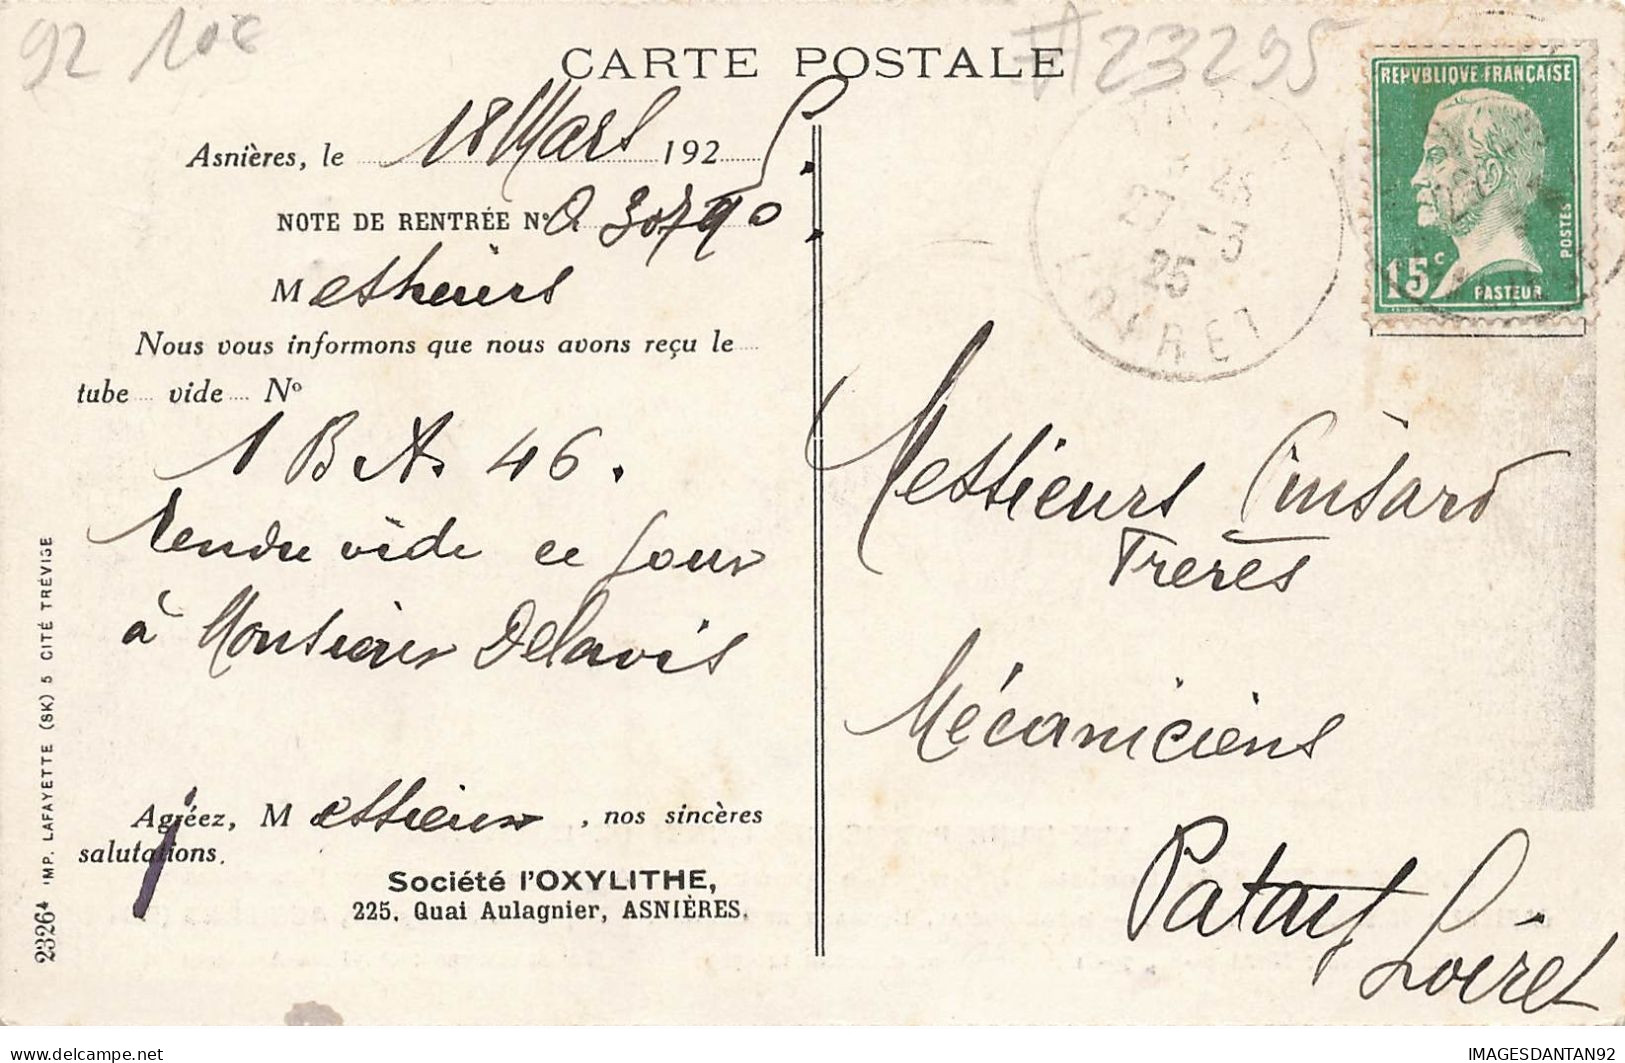 92 10€
#23295
CARTE POSTALE
Asnières, le 18 Mars 1925.
NOTE DE RENTRÉE Nº
Messieurs
Nous vous informons que nous avons reçu le
tube vide Nº
1 B A. 46.
rendu vide ce jour
à Monsieur Delavis
Agréez, Messieurs, nos sincères
salutations.
Société l'OXYLITHE,
225, Quai Aulagnier, ASNIÈRES.
23264 IMP. LAFAYETTE (SK) 5 CITÉ TRÉVISE
REPVBLIQVE FRANÇAISE
15c
POSTES
PASTEUR
27 -3
25
LOIRET
Messieurs Cinsard
Frères
Mécaniciens
Patay
Loiret
IMAGESDANTAN92
delcampe.net